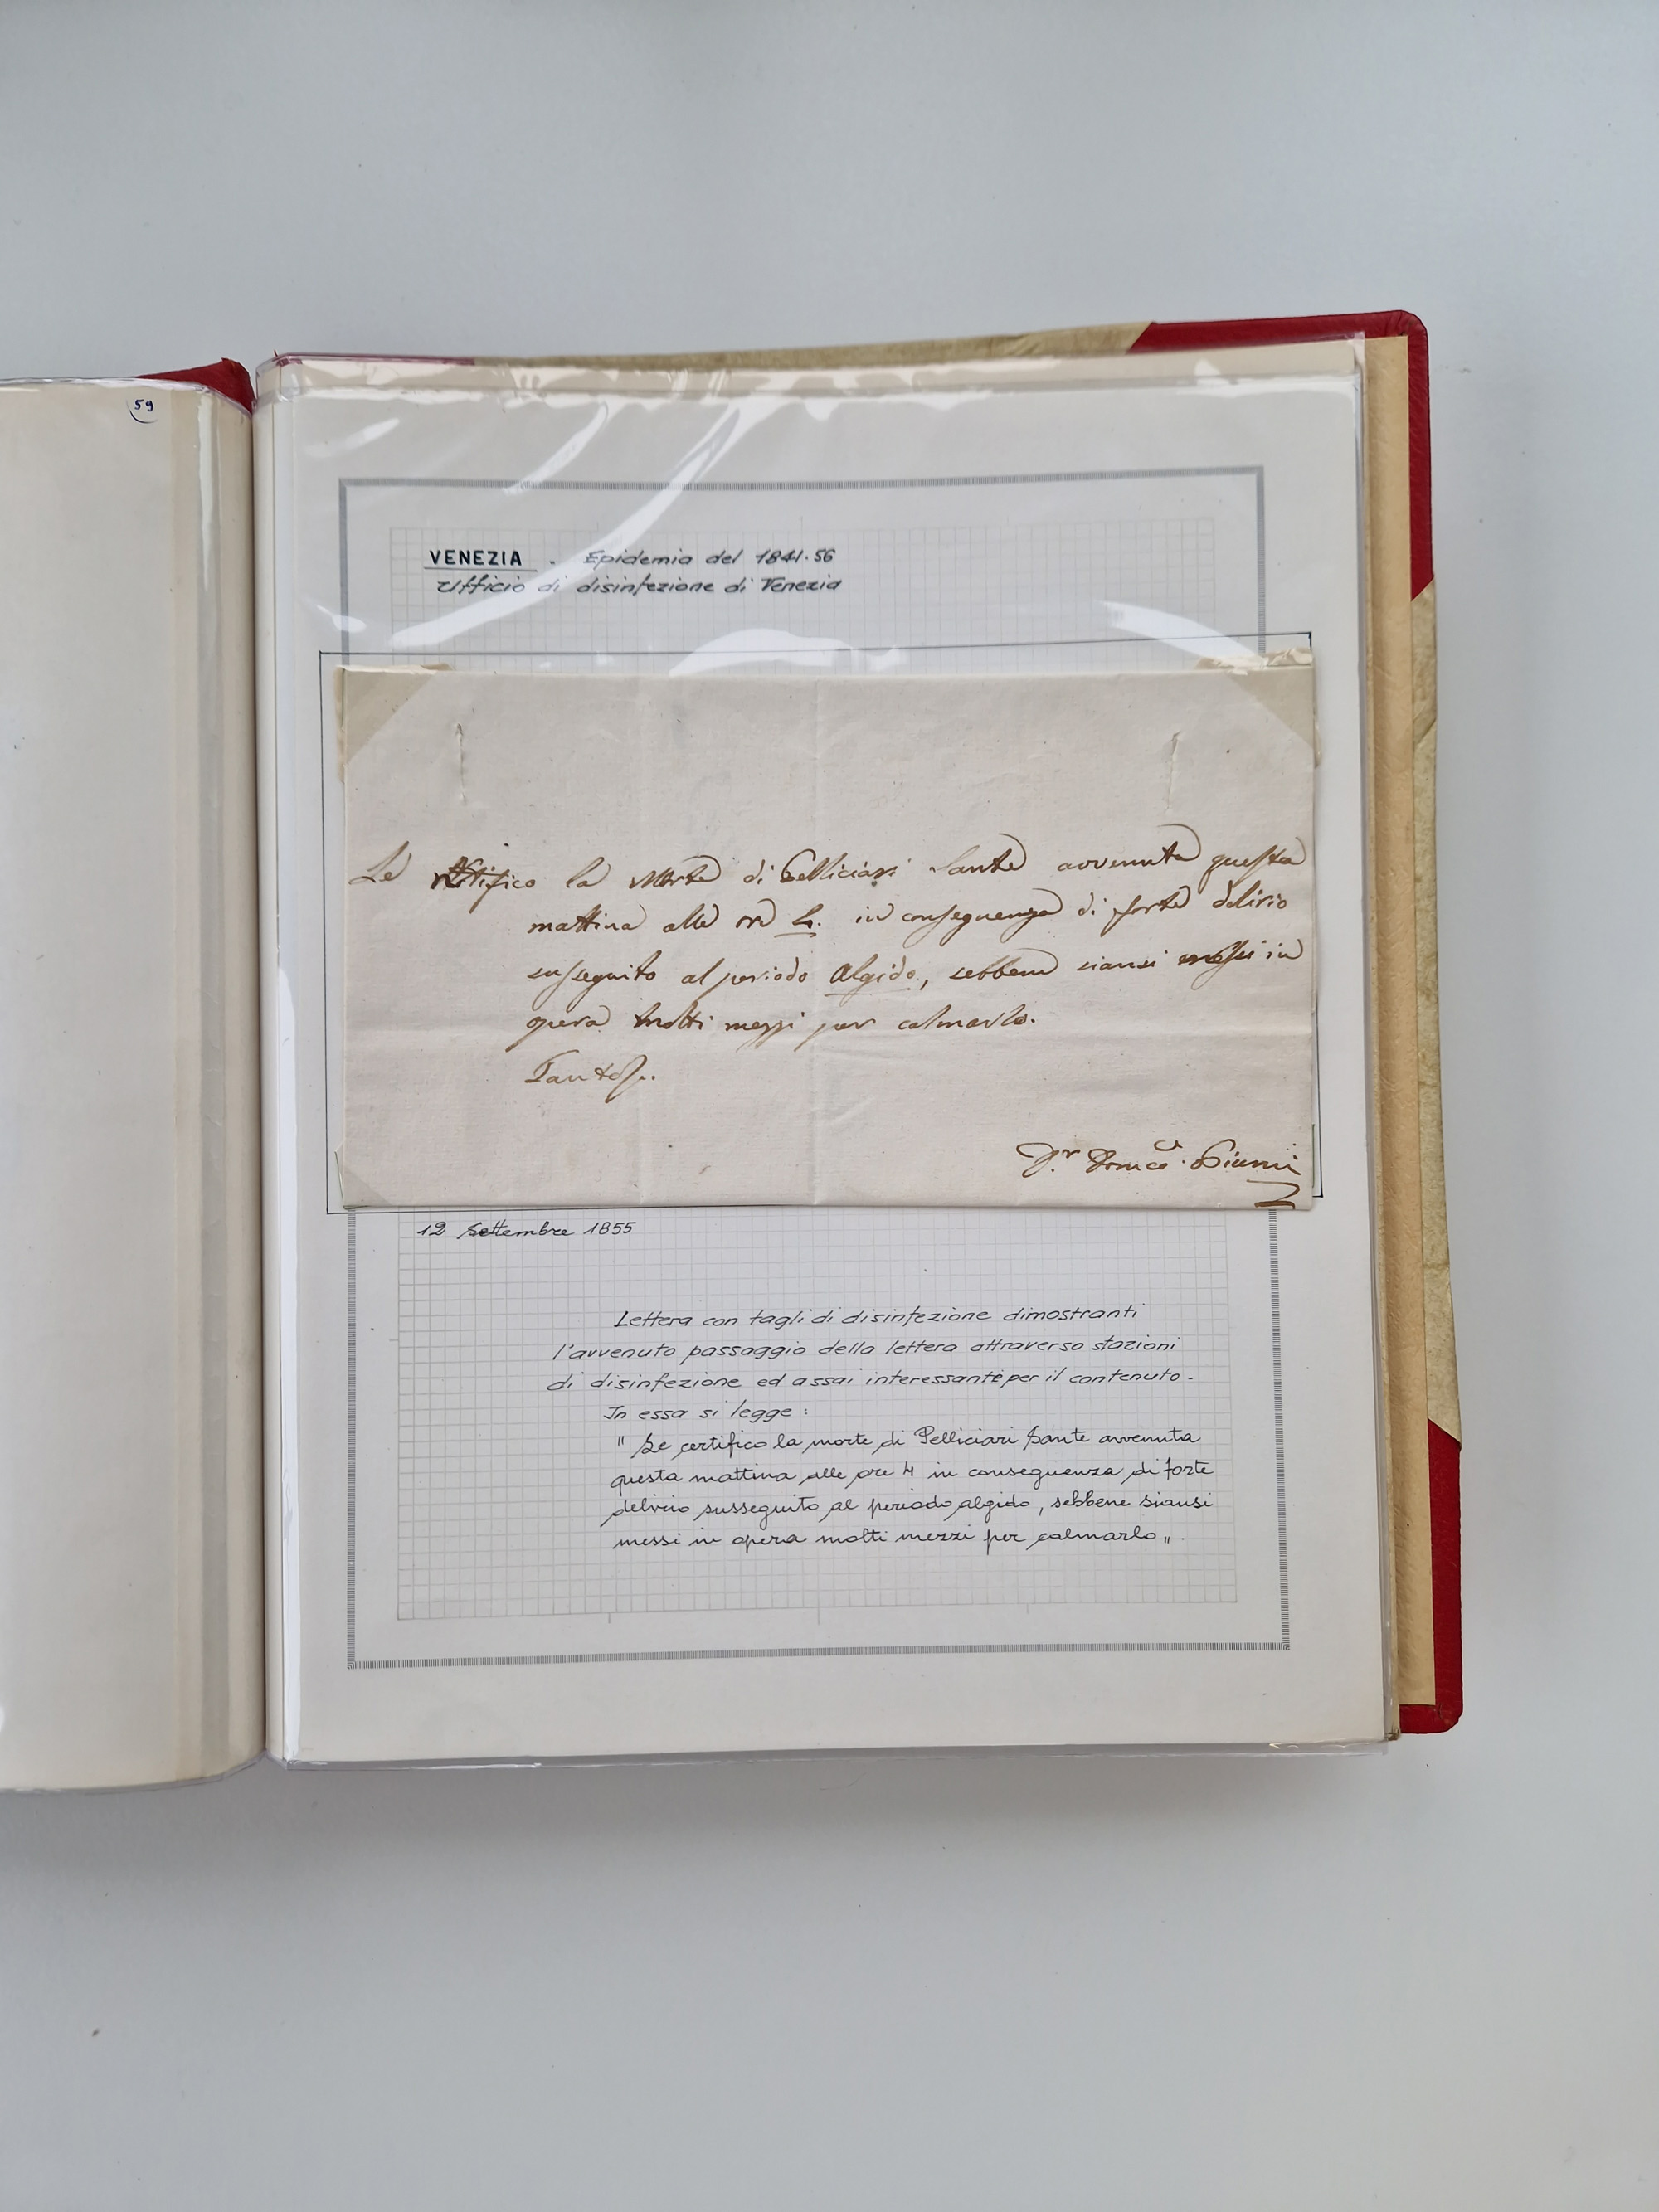 59
VENEZIA - Epidemia del 1841-56
Ufficio di disinfezione di Venezia
Le notifico la morte di Pelliciari Sante avvenuta questa
mattina alle ore 4. in conseguenza di forte delirio
susseguito al periodo Algido, sebbene siansi messi in
opera molti mezzi per calmarlo.
D.r Domco.
12 Settembre 1855
Lettera con tagli di disinfezione dimostranti
l'avvenuto passaggio della lettera attraverso stazioni
di disinfezione ed assai interessante per il contenuto.
In essa si legge:
" Le certifico la morte di Pelliciari Sante avvenuta
questa mattina alle ore 4 in conseguenza di forte
delirio susseguito al periodo algido, sebbene siansi
messi in opera molti mezzi per calmarlo „.